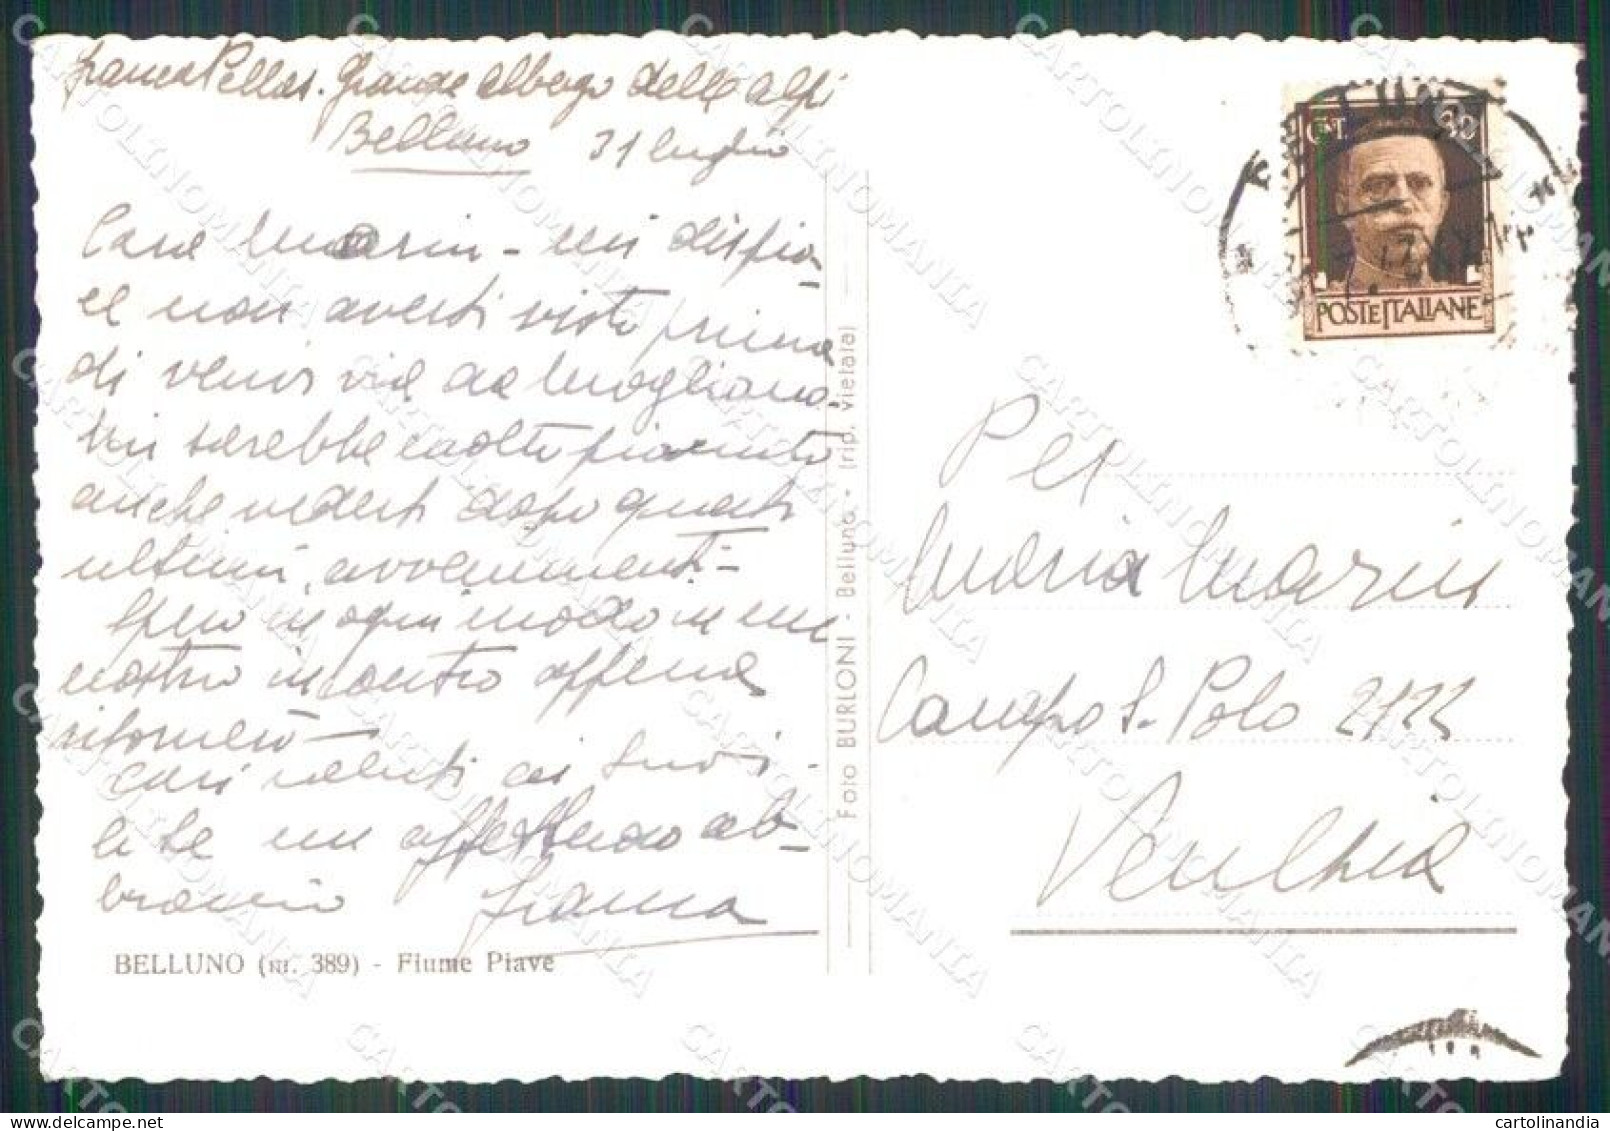 Franca Pellas. Grande Albergo delle Alpi
Belluno 31 luglio
Cara Marin - mi dispia-
ce non averti visto prima
di venir via da Mogliano.
Mi sarebbe molto piaciuto
anche vederti dopo questi
ultimi avvenimenti -
Spero in ogni modo in un
nostro incontro appena
ritornerò
Cari saluti ai Suoi
a te un affettuoso ab-
braccio Franca
BELLUNO (m. 389) - Fiume Piave
Foto BURLONI - Belluno - (rip. vietata)
CENT. 30
POSTE ITALIANE
Per
Maria Marin
Campo S. Polo 2122
Venezia
CARTOLINOMANIA
cartolinandia